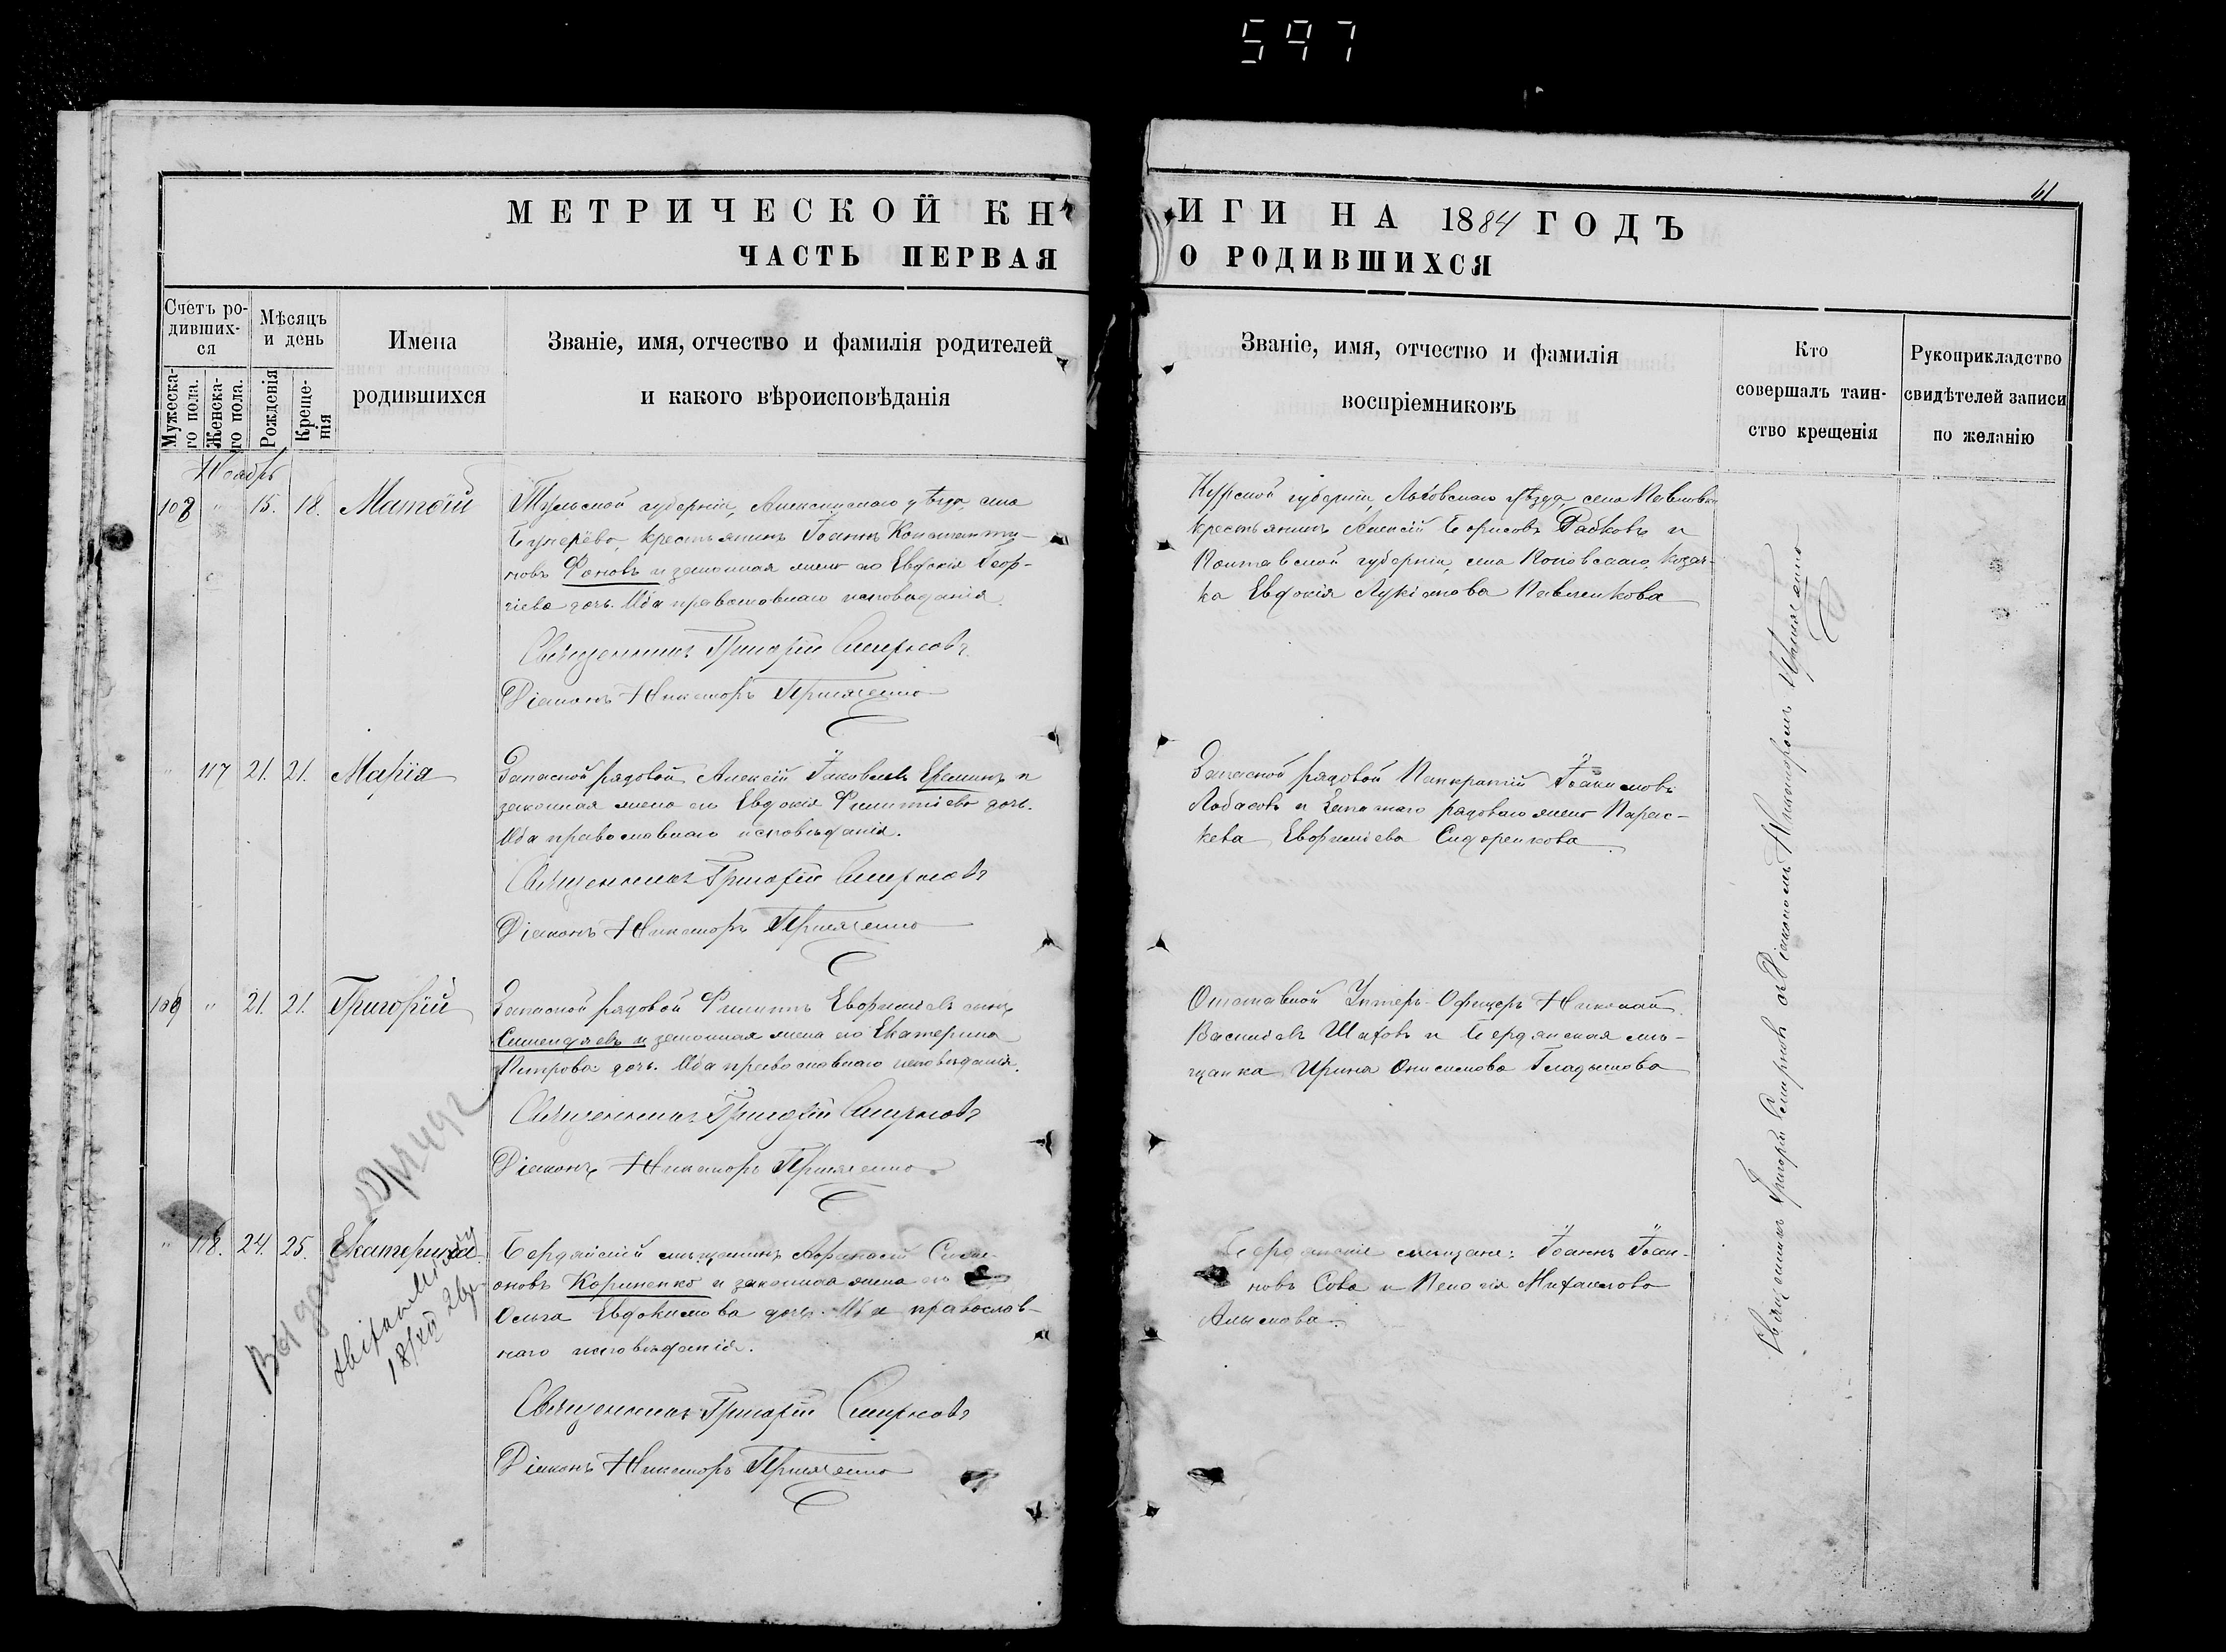 597
41
МЕТРИЧЕСКОЙ КН
ЧАСТЬ ПЕРВАЯ
ИГИ НА 1884 ГОДЪ
О РОДИВШИХСЯ
Счетъ ро-
дивших-
ся
Мужеска-
го пола.
Женска-
го пола.
Мѣсяцъ
и день
Рожденія
Креще-
нія
Имена
родившихся
Званіе, имя, отчество и фамилія родителей
и какого вѣроисповѣданія
Званіе, имя, отчество и фамилія
воспріемниковъ
Кто
совершалъ таин-
ство крещенія
Рукоприкладство
свидѣтелей записи
по желанію
Ноябрь
108 " 15. 18. Матѳій
Тульской губерніи, Алексинскаго уѣзда, села
крестьянинъ Іоаннъ Константи-
новъ Фоновъ и законная жена его Евдокія Геор-
гіева дочь. Оба православнаго исповѣданія.
Священникъ Григорій Смирновъ
Діаконъ Никаноръ
Курской губерніи, Льговскаго уѣзда, села
крестьянинъ Алексій Борисовъ Рабковъ и
Полтавской губерніи, села Поповскаго, козач-
ка Евдокія Лукіанова Павленкова
" 117 21. 21. Марія
Запасной рядовой Алексій Іаковлевъ Ереминъ и
законная жена его Евдокія Филиппіева дочь.
Оба православнаго исповѣданія.
Священникъ Григорій Смирновъ
Діаконъ Никаноръ
Запасной рядовой Панкратій Іоакимовъ
Лобасовъ и запаснаго рядоваго жена Парас-
кева Евфиміева Сидоренкова
109 " 21. 21. Григорій
Запасной рядовой Филиппъ Евфиміевъ сынъ
и законная жена его Екатерина
Петрова дочь. Оба православнаго исповѣданія.
Священникъ Григорій Смирновъ
Діаконъ Никаноръ
Отставной Унтеръ-Офицеръ Николай
Васильевъ Шаховъ и Бердянская мѣ-
щанка Ирина Онисимова Гладышова
" 118. 24. 25. Екатерина
Бердянскій мѣщанинъ Аѳанасій Симе-
оновъ Кориненко и законная жена его
Ольга Евдокимова дочь. Оба православ-
наго исповѣданія.
Священникъ Григорій Смирновъ
Діаконъ Никаноръ
Бердянскіе мѣщане: Іоаннъ Іоан-
новъ Сова и Пелагія Михаилова
Алымова.
Священникъ Григорій Смирновъ съ Діакономъ Никаноромъ